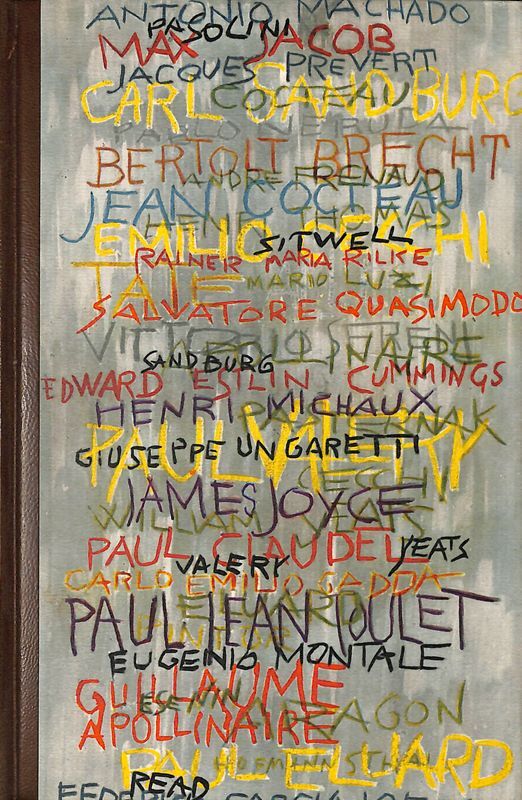 ANTONIO MACHADO
PASOLINI
MAX JACOB
JACQUES PREVERT
CARL SANDBURG
COCTEAU
PABLO NERUDA
BERTOLT BRECHT
ANDRE FRENAUD
JEAN COCTEAU
THOMAS
EMILIO CECCHI
SITWELL
RAINER MARIA RILKE
TATE
MARIO LUZI
SALVATORE QUASIMODO
VITTORIO SERENI
APOLLINAIRE
SANDBURG
EDWARD ESILIN CUMMINGS
HENRI MICHAUX
PASTERNAK
PAUL VALERY
GIUSEPPE UNGARETTI
CECCHI
JAMES JOYCE
WILLIAM YEATS
PAUL CLAUDEL
YEATS
VALERY
CARLO EMILIO GADDA
ELUARD
PAUL JEAN TOULET
EUGENIO MONTALE
GUILLAUME
ESENIN
ARAGON
APOLLINAIRE
HOFMANNSTHAL
PAUL ELUARD
READ